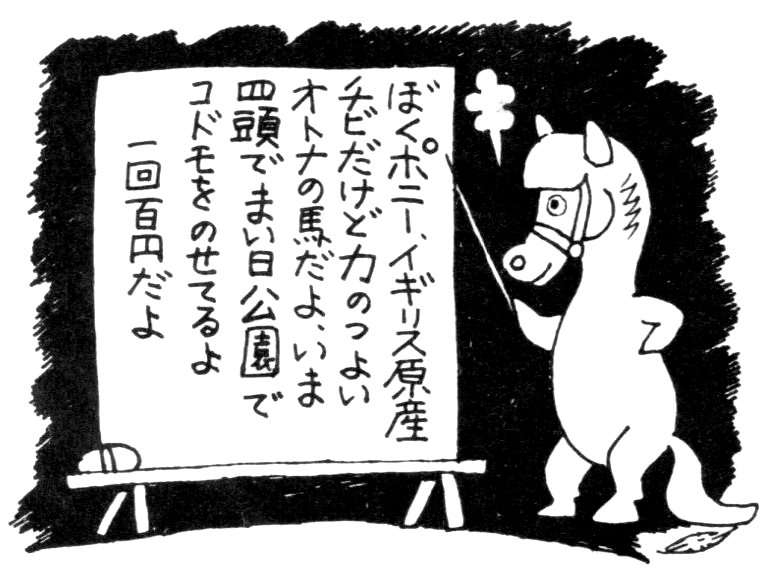 ぼくポニー、イギリス原産
チビだけど力のつよい
オトナの馬だよ、いま
四頭でまい日公園で
コドモをのせてるよ
一回百円だよ